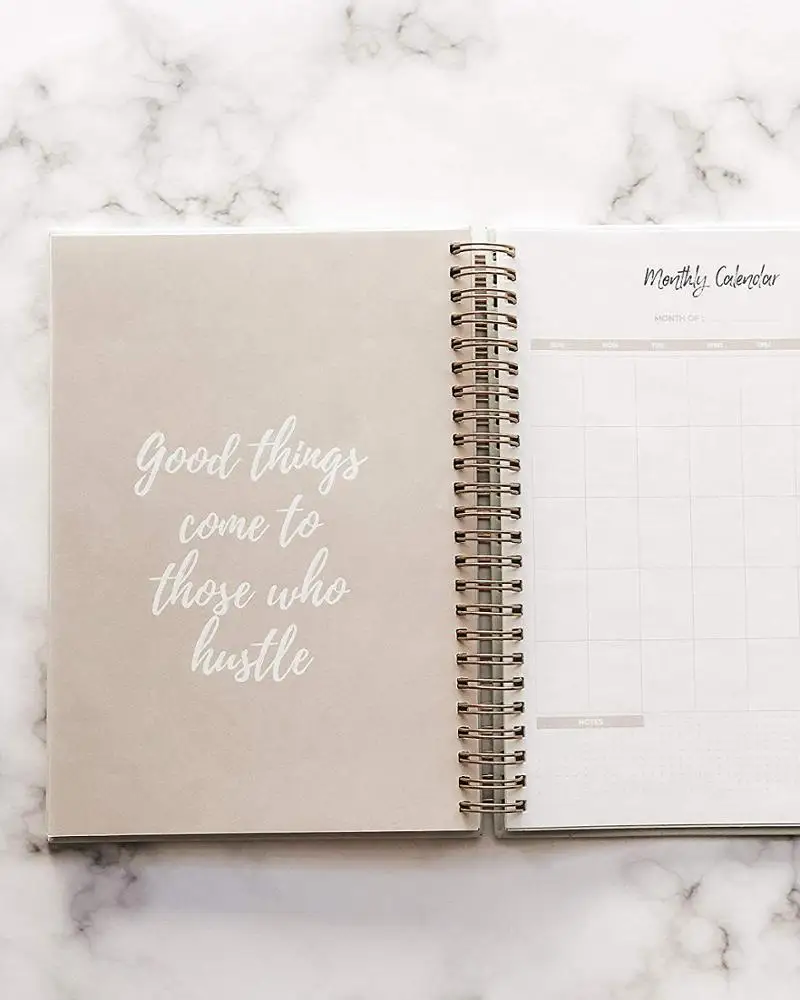 Good things
come to
those who
hustle
Monthly Calendar
MONTH OF:
SUN MON TUE WED THU
NOTES